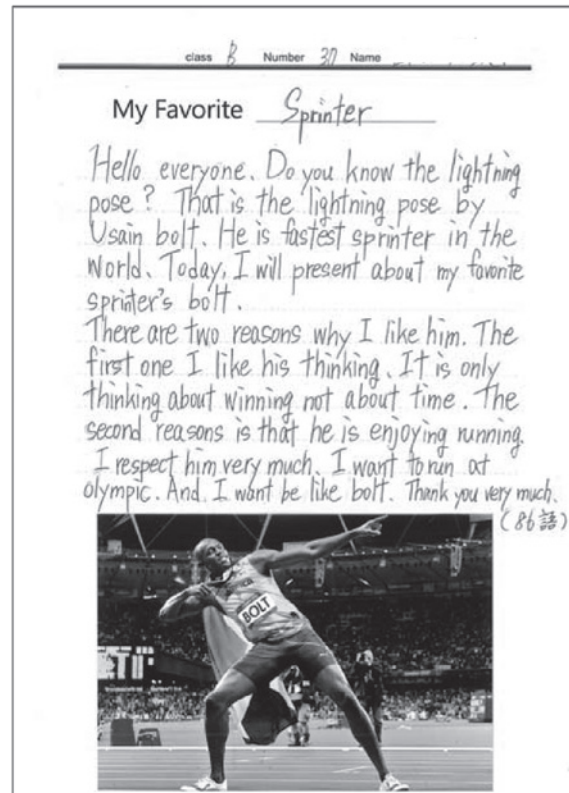 class B Number 30 Name
My Favorite Sprinter
Hello everyone. Do you know the lightning
pose? That is the lightning pose by
Usain bolt. He is fastest sprinter in the
world. Today, I will present about my favorite
sprinter's bolt.
There are two reasons why I like him. The
first one I like his thinking. It is only
thinking about winning not about time. The
second reasons is that he is enjoying running.
I respect him very much. I want to run at
olympic. And. I want be like bolt. Thank you very much.
(86語)
BOLT